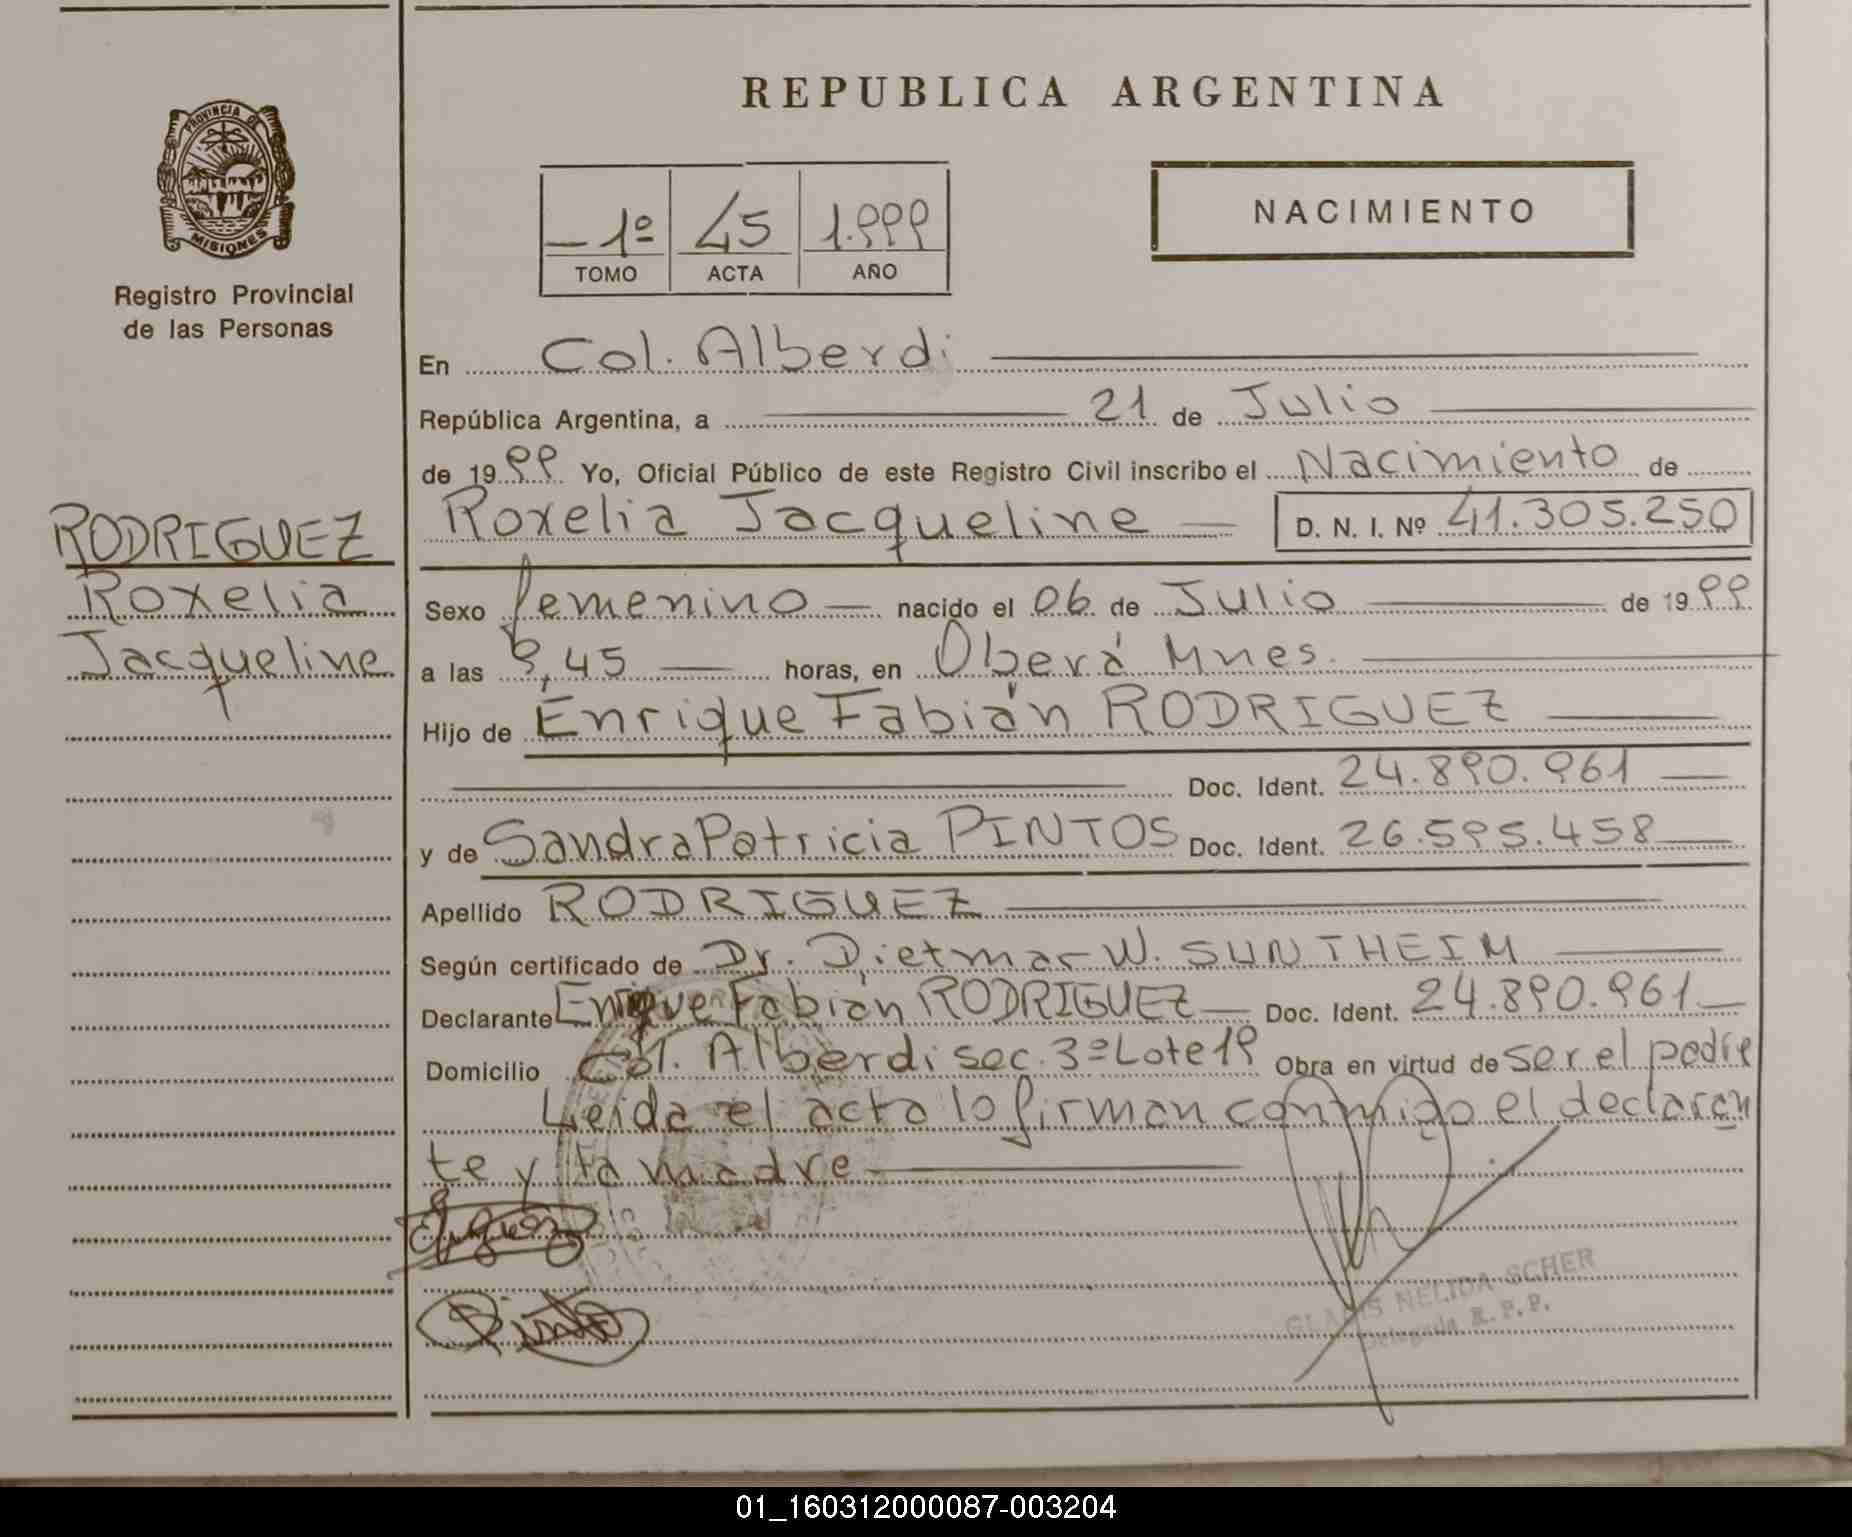 REPUBLICA ARGENTINA
PROVINCIA DE
MISIONES
Registro Provincial
de las Personas
1º 45 1.999
TOMO ACTA AÑO
NACIMIENTO
En Col. Alberdi
República Argentina, a 21 de Julio
de 1999 Yo, Oficial Público de este Registro Civil inscribo el Nacimiento de
Roxelia Jacqueline D. N. I. Nº 41.305.250
RODRIGUEZ
Roxelia
Jacqueline
Sexo femenino nacido el 06 de Julio de 1999
a las 9,45 horas, en Oberá Mnes.
Hijo de Enrique Fabián RODRIGUEZ
Doc. Ident. 24.890.961
y de Sandra Patricia PINTOS Doc. Ident. 26.595.458
Apellido RODRIGUEZ
Según certificado de Dr. Dietmar W. SUNTHEIM
Declarante Enrique Fabián RODRIGUEZ Doc. Ident. 24.890.961
Domicilio Col. Alberdi sec. 3º Lote 19 Obra en virtud de ser el padre
Leida el acta lo firman conmigo el declaran
te y la madre
GLADIS NELIDA SCHER
Delegada R.P.P.
01_160312000087-003204